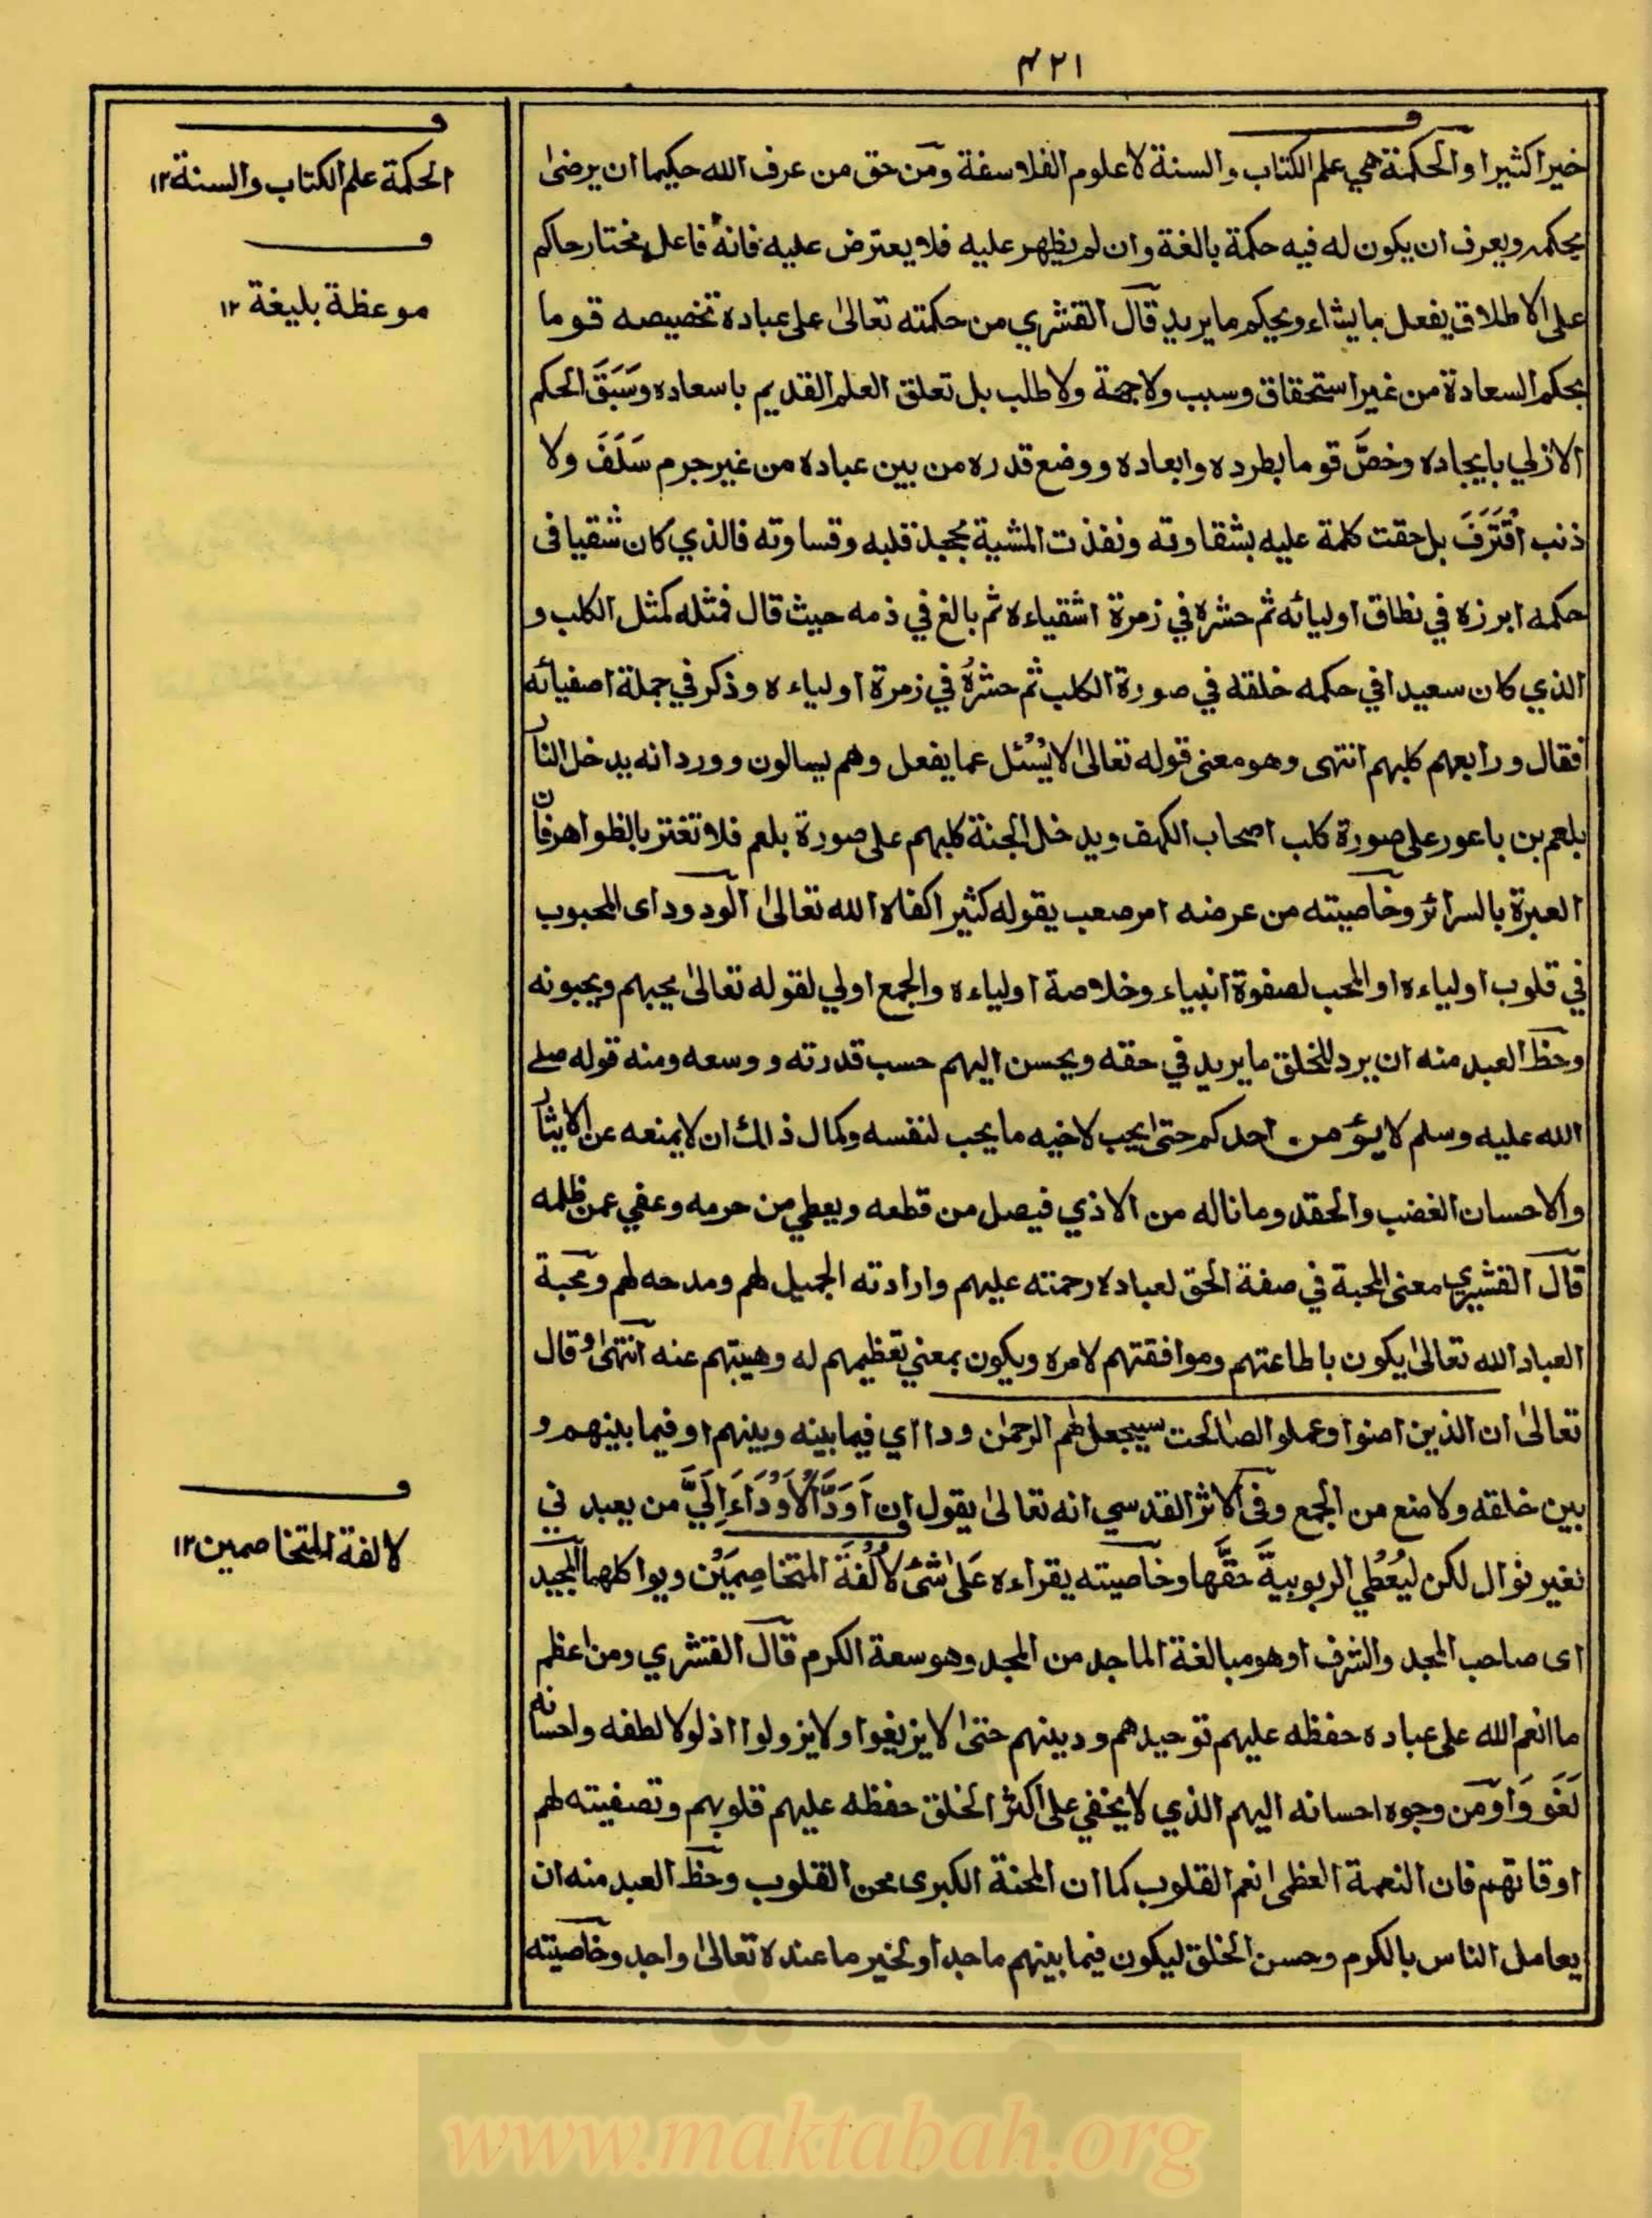 ٤٢١
خيرا كثيرا والحكمة هي علم الكتاب والسنة لا علوم الفلاسفة ومن حق من عرف الله حكيما ان يرضى
بحكمه ويعرف ان يكون له فيه حكمة بالغة وان لم يظهر عليه فلا يعترض عليه فانه فاعل مختار حاكم
على الاطلاق يفعل ما يشاء ويحكم ما يريد قال القشري من حكمته تعالى على عباده تخصيصه قوما
بحكم السعادة من غير استحقاق وسبب ولا جهة ولا طلب بل تعلق العلم القديم باسعاده وسَبَقَ الحكم
الازلي بايجاده وخصَّ قوما بطرده وابعاده ووضع قدره من بين عباده من غير جرم سَلَفَ ولا
ذنب اقْتَرَفَ بل حقت كلمة عليه بشقاوته ونفذت المشية بجحد قلبه وقساوته فالذي كان شقيا فى
حكمه ابرزه في نطاق اوليائه ثم حشره في زمرة اشقياءه ثم بالغ في ذمه حيث قال فمثله كمثل الكلب و
الذي كان سعيدا في حكمه خلقه في صورة الكلب ثم حشرهُ في زمرة اولياءه وذكر في جملة اصفيائه
فقال ورابعهم كلبهم انتهى وهو معنى قوله تعالى لا يُسْئل عما يفعل وهم يسالون وورد انه يدخل النار
بلعم بن باعور على صورة كلب اصحاب الكهف ويدخل الجنة كلبهم على صورة بلعم فلا تغتر بالظواهر فان
العبرة بالسرائر وخاصيته من عرضه امر صعب يقوله كثيرا كفاه الله تعالى الودود اى المحبوب
في قلوب اولياءه او المحب لصفوة انبياء وخلاصة اولياءه والجمع اولي لقوله تعالى يحبهم ويحبونه
وحظ العبد منه ان يرد للخلق ما يريد في حقه ويحسن اليهم حسب قدرته ووسعه ومنه قوله صلے
الله عليه وسلم لا يؤمن احدكم حتى يحب لاخيه ما يحب لنفسه وكمال ذلك ان لا يمنعه عن الايثار
والاحسان الغضب والحقد وما ناله من الاذي فيصل من قطعه ويعطي من حرمه وعفي عمن ظلمه
قال القشيري معنى المحبة في صفة الحق لعباده رحمته عليهم وارادته الجميل لهم ومدحه لهم ومحبة
العباد الله تعالى يكون باطاعتهم وموافقتهم لامره ويكون بمعني تعظيمهم له وهيبتهم عنه انتهى وقال
تعالى ان الذين امنوا وعملو الصالحت سيجعل لهم الرحمن ودا اي فيما بينه وبينهم او فيما بينهم و
بين خلقه ولا منع من الجمع وفى الاثر القدسي انه تعالى يقول ان اَوَدَّ الْاَوِدَّاءِ اِلَيَّ من يعبدني
بغير نوال لكن ليُعْطي الربوبيةَ حقَّها وخاصيته يقراءه عَلى شئ لاُلْفَةَ المتخاصِمَيْن ويواكلهما المجيد
اى صاحب المجد والشرف او هو مبالغة الماجد من المجد وهو سعة الكرم قال القشري ومن اعظم
ما انعم الله على عباده حفظه عليهم توحيدهم ودينهم حتى لا يزيغوا ولا يزولوا اذ لولا لطفه واحسانه
لَغَووَا ومن وجوه احسانه اليهم الذي لا يخفي على اكثر الخلق حفظه عليهم قلوبهم وتصفيته لهم
اوقاتهم فان النعمة العظمى نعم القلوب كما ان المحنة الكبرى محن القلوب وحظ العبد منه ان
يعامل الناس بالكرم وحسن الخلق ليكون فيما بينهم ماجدا ولخير ما عنده تعالى واجد وخاصيته
الحكمة علم الكتاب والسنة ١٢
موعظة بليغة ١٢
لالفة المتخاصمين ١٢
www.maktabah.org